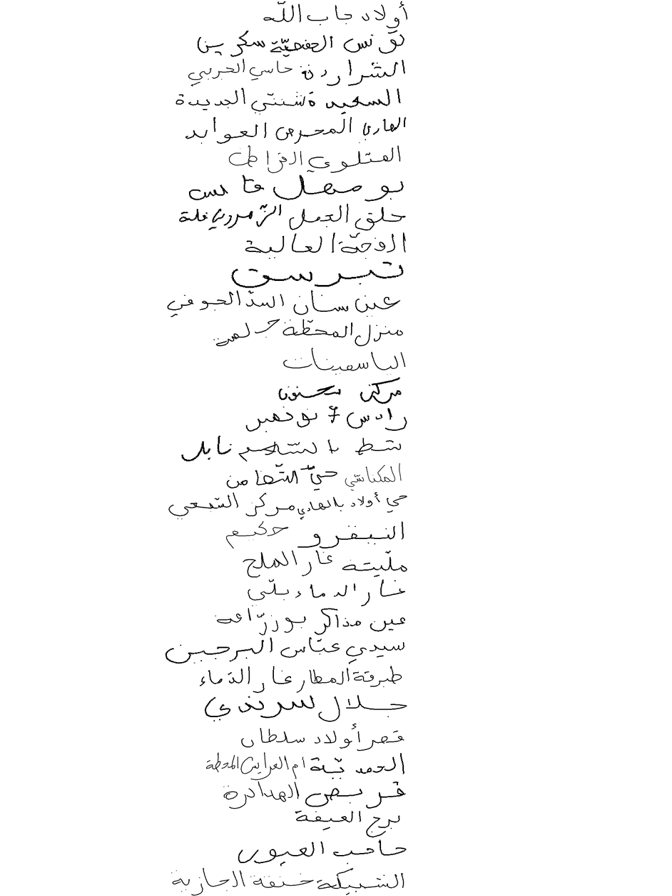 أولاد جاب اللّه
تونس الفتحيّة سكرين
الشراردة حاسي الحربي
السعيدة شنتي الجديدة
الهاري المحرص العوابد
المتلوي القراطن
بو مهل قابس
حلق الجمل الزهروني فلة
الوجبة العالية
تبرسق
عين سنان السدّ الجوفي
منزل المحطّة جلمة
الياسمينات
مركز سحنون
رادس 7 نوفمبر
شط السلام نابل
المكناسي حيّ التضامن
حي أولاد بالهادي مركز الشعبي
النيفرو حكيم
مليتة غار الملح
غار الدماء بلّي
عين مذاكر بوزرّافة
سيدي عبّاس البرجين
طبرقة المطار غار الدّماء
جلال سرندي
قصر أولاد سلطان
الحمديّة ام العرايس المحطة
قربص الهدادرة
برج العيفة
حاجب العيون
الشبيكة خنقة الجازية